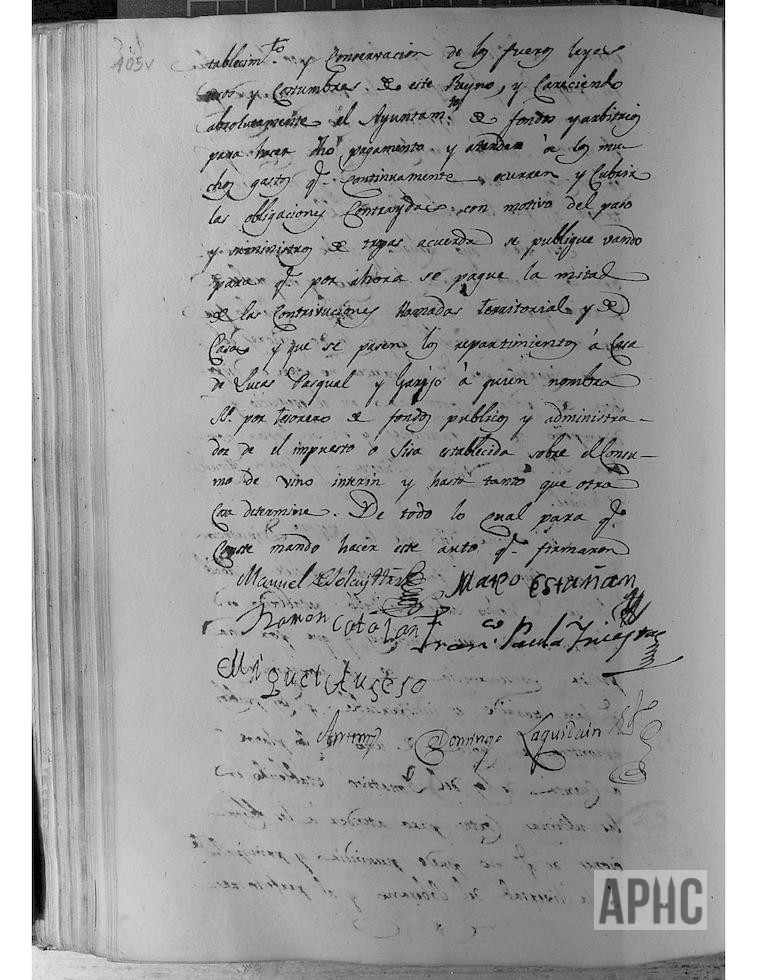 105v
tablecim.to y Conservacion de los fueros leyes
usos y Costumbres de este Reyno, y Careciendo
absolutamente el Ayuntam.to de fondos y arbitrios
para hacer dho pagamento y atender à los mu
chos gastos q.e continuamente ocurren y Cubrir
las obligaciones Contraydas con motivo del paso
y suministros de tropas acuerda se publique vando
para q.e por ahora se pague la mitad
de las Contribuciones llamadas territorial y de
Casas y que se pasen los repartimientos à Casa
de Lucas Pasqual y Garijo à quien nombra
S.S. por tesorero de fondos publicos y administra-
dor de el impuesto o sisa establecida sobre el Consu-
mo de vino interin y hasta tanto que otra
Cosa determine. De todo lo qual para q.e
Conste mando hacer este auto q.e firmaron
Manuel Mateo Estañan
Ramon Catalan Fran.co Paula
Miguel Ausejo
Antemi Domingo Laguiduin
APHC